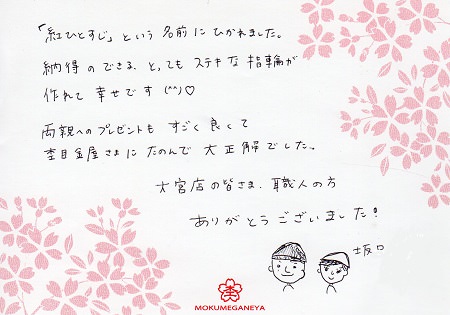 「紅ひとすじ」という名前にひかれました。
納得のできる、とってもステキな指輪が
作れて幸せです(^^)♡
両親へのプレゼントもすごく良くて
杢目金屋さまにたのんで大正解でした。
大宮店の皆さま、職人の方
ありがとうございました!
坂口
MOKUMEGANEYA